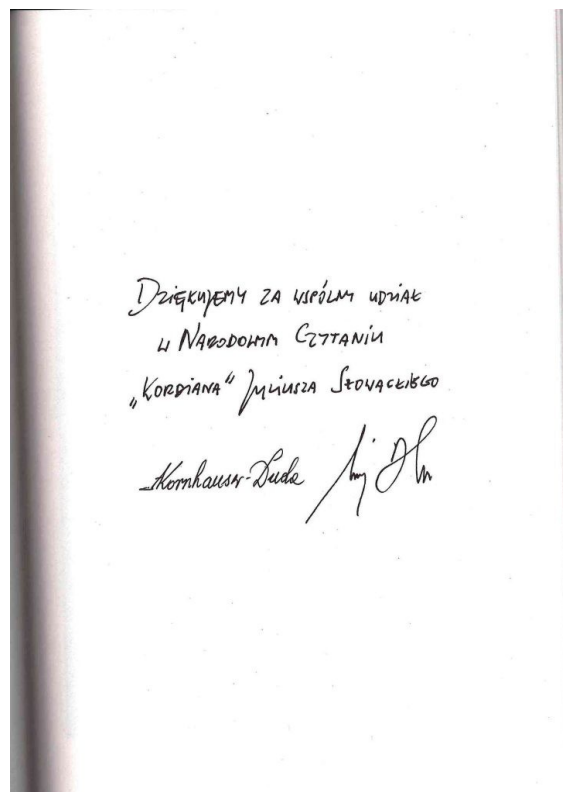 Dziękujemy za wspólny udział
w Narodowym Czytaniu
„Kordiana" Juliusza Słowackiego
AKornhauser-Duda